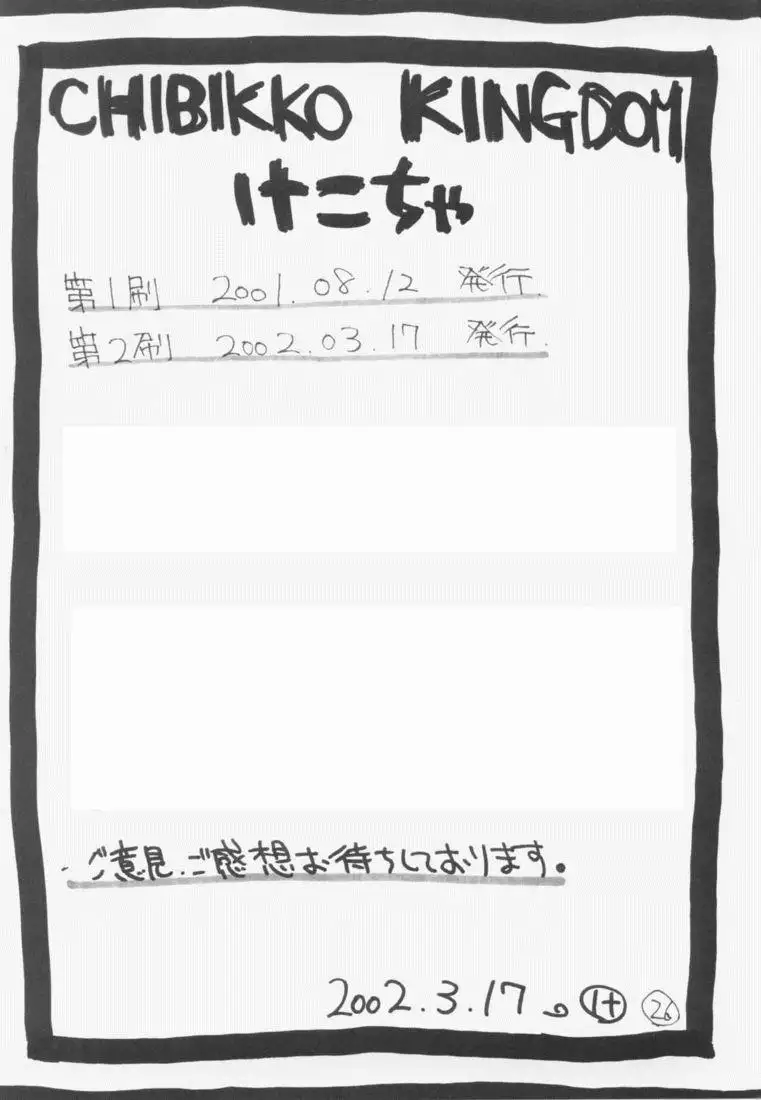 CHIBIKKO KINGDOM
けこちゃ
第1刷 2001.08.12 発行.
第2刷 2002.03.17 発行.
ご意見、ご感想お待ちしております。
2002.3.17 け 26